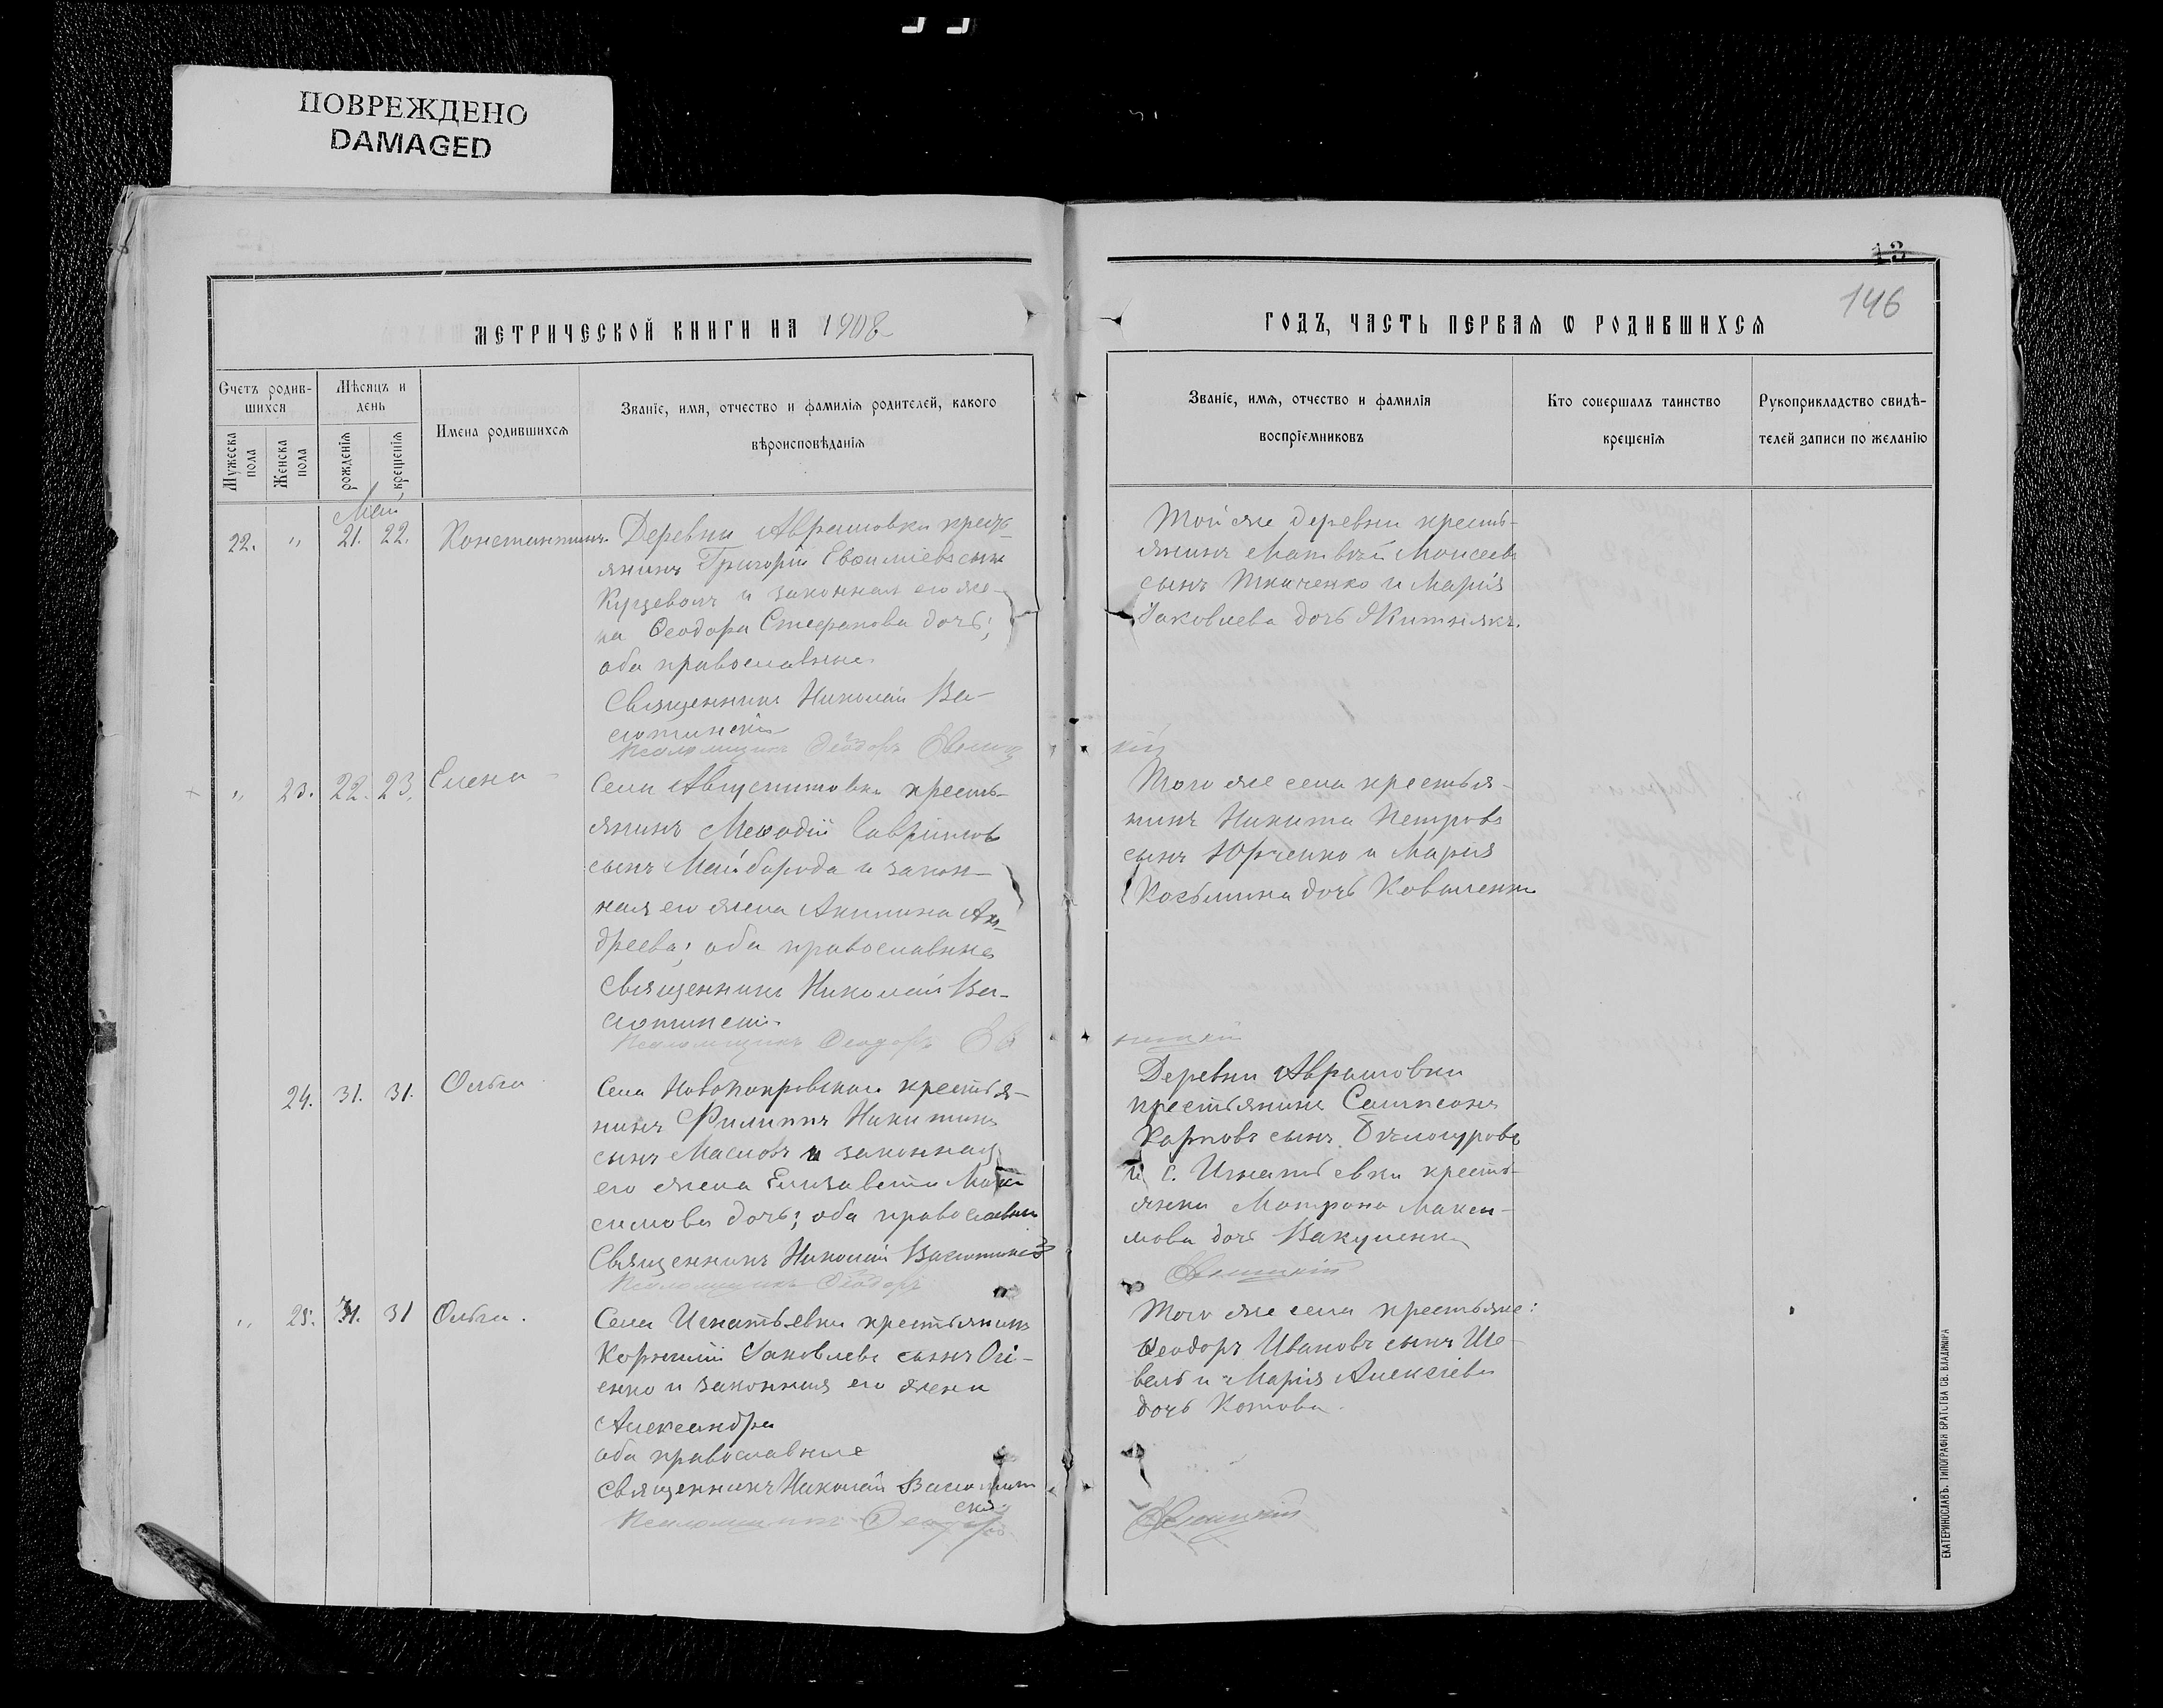 ПОВРЕЖДЕНО
DAMAGED
13
146
МЕТРИЧЕСКОЙ КНИГИ НА 1908
ГОДЪ, ЧАСТЬ ПЕРВАЯ Ѡ РОДИВШИХСЯ
Счетъ родив-
шихся
Мужеска
пола
Женска
пола
Мѣсяцъ и
день
рожденія
крещенія
Имена родившихся
Званіе, имя, отчество и фамилія родителей, какого
вѣроисповѣданія
Званіе, имя, отчество и фамилія
воспріемниковъ
Кто совершалъ таинство
крещенія
Рукоприкладство свидѣ-
телей записи по желанію
Май
22. " 21. 22. Константинъ.
Деревни Аврамовки крестъ-
янинъ Григорій Евѳиміевъ сынъ
и законная его же-
на Ѳеодора Стефанова дочь;
оба православные.
Священникъ Николай Ва-
сютинскій
Псаломщикъ Ѳеодоръ
Той же деревни кресть-
янинъ Матвѣй Моисеевъ
сынъ Ткаченко и Марія
Іаковлева дочь Житнякъ.
" 23. 22. 23. Елена
Села Августиновки кресть-
янинъ Меѳодій Гавріиловъ
сынъ Майборода и закон-
ная его жена Акилина Ан-
дреева; оба православные
Священникъ Николай Ва-
сютинскій
Псаломщикъ Ѳеодоръ
Того же села крестья-
нинъ Никита Петровъ
сынъ Юрченко и Марія
Козьмина дочь Коваленко
24. 31. 31. Ольга
Села Новопокровскаго крестья-
нинъ Филиппъ Никитинъ
сынъ Масловъ и законная
его жена Елизавета Мак
симова дочь; оба православные
Священникъ Николай Васютинскій
Псаломщикъ Ѳеодоръ
Деревни Аврамовки
крестьянинъ Сампсонъ
Карповъ сынъ Бѣлогуровъ
и с. Игнатьевки кресть-
янка Матрона Макси-
мова дочь Вакуленко
" 25. 31. 31 Ольга.
Села Игнатьевки крестьянинъ
Корнилій Іаковлевъ сынъ Огі-
енко и законная его жена
Александра
оба православные
Священникъ Николай Васютин
скій
Псаломщикъ Ѳеодоръ
Того же села крестьяне:
Ѳеодоръ Ивановъ сынъ Ше-
вель и Марія Алексіева
дочь Котова.
ЕКАТЕРИНОСЛАВЪ. ТИПОГРАФІЯ БРАТСТВА СВ. ВЛАДИМІРА